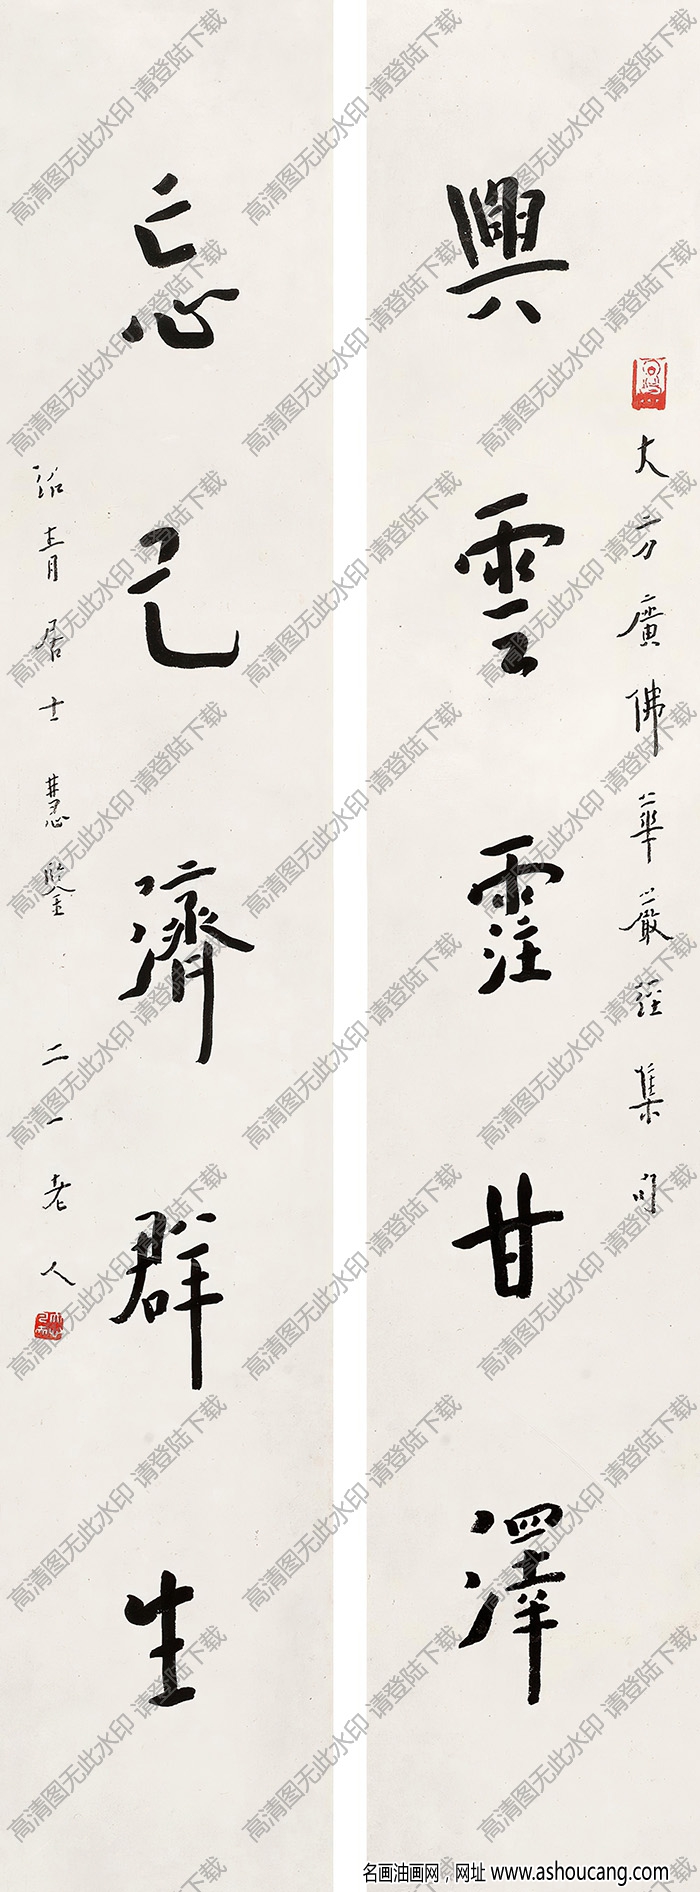 興雲霔甘澤
大方廣佛華嚴經集句
忘己濟群生
紹青居士慧鑒
二一老人
高清图无此水印 请登陆下载
名画油画网，网址 www.ashoucang.com